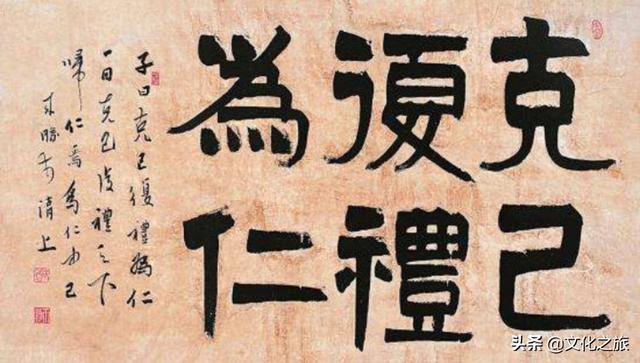 克己
復禮
為仁
子曰克己復禮為仁
一日克己復禮天下
歸仁焉為仁由己
头条 @文化之旅